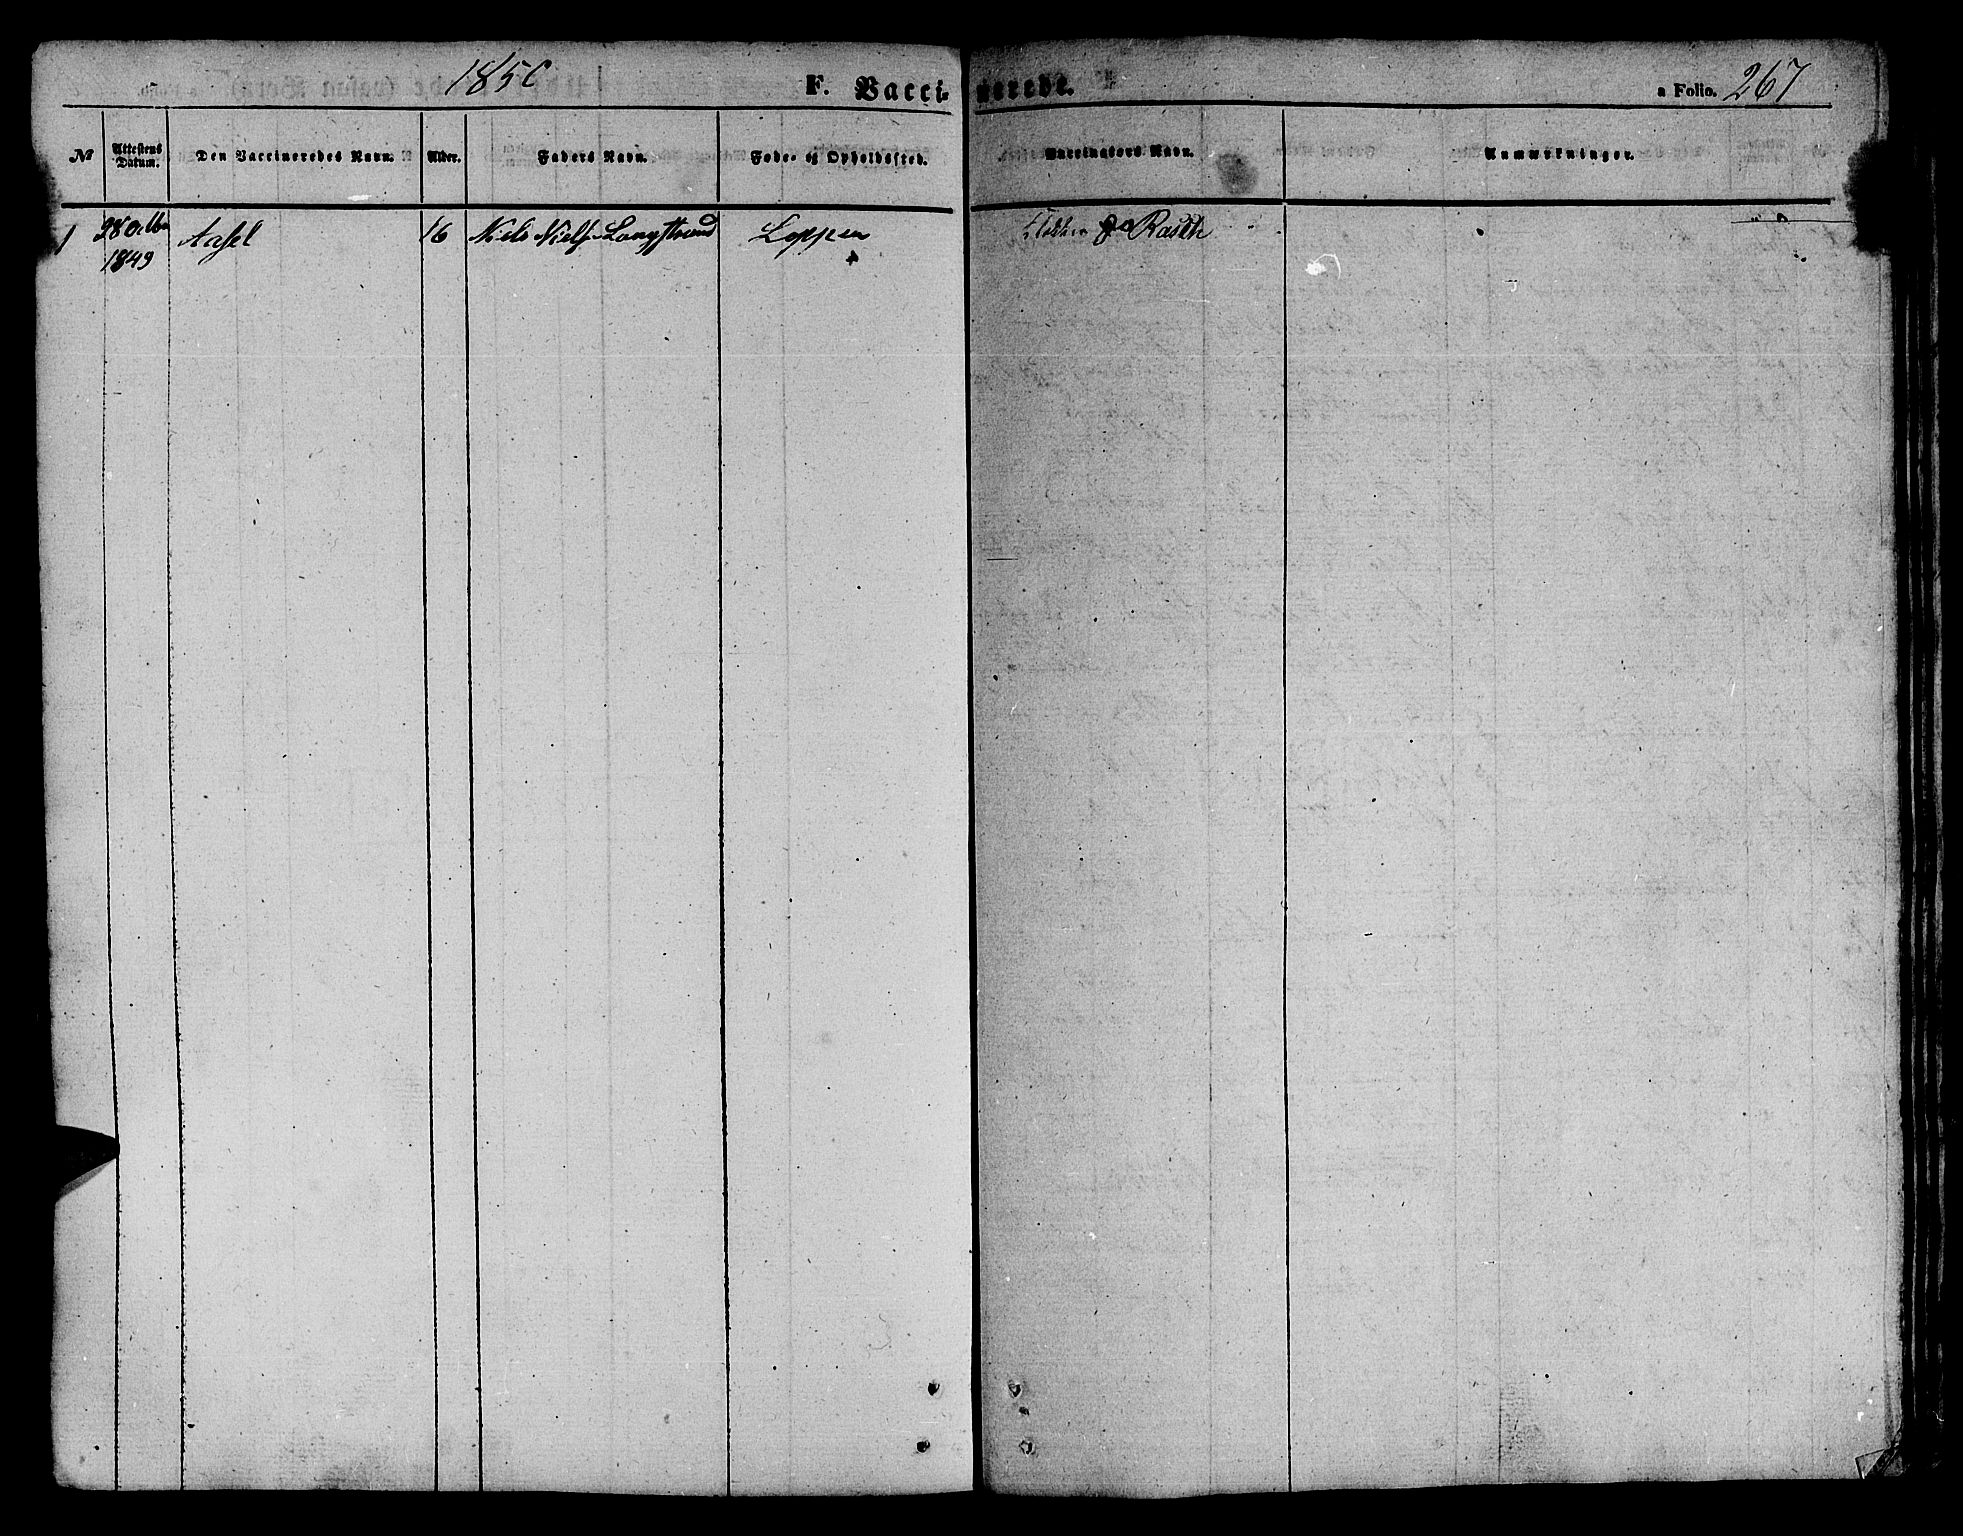 1850 F. Vaccinerede. a Folio. 267
№ Attestens Datum. Den Vaccineredes Navn. Alder. Faders Navn. Føde- og Opholdssted. Vaccinateurs Navn. Anmærkninger.
1 28 Octbr Aasel 16 Niels Niels. Langstrand Loppen Rasch
1849